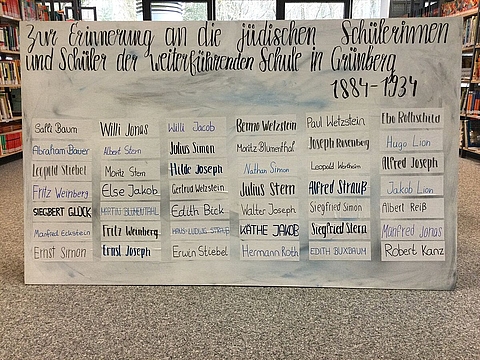 Zur Erinnerung an die jüdischen Schülerinnen
und Schüler der weiterführenden Schule in Grünberg
1884-1934
Salli Baum Willi Jonas Willi Jacob Benno Wetzstein Paul Wetzstein Ebo Rothschild
Abraham Bauer Albert Stern Julius Simon Moritz Blumenthal Joseph Rosenberg Hugo Lion
Leopold Stiebel Moritz Stern Hilde Joseph Nathan Simon Leopold Wertheim Alfred Joseph
Fritz Weinberg Else Jakob Gertrud Wetzstein Julius Stern Alfred Strauß Jakob Lion
SIEGBERT GLÜCK MARTIN BLUMENTHAL Edith Bick Walter Joseph Siegfried Simon Albert Reiß
Manfred Eckstein Fritz Weinberg HANS-LUDWIG STRAUß KÄTHE JAKOB Siegfried Stern Manfred Jonas
Ernst Simon Ernst Joseph Erwin Stiebel Hermann Roth EDITH BUXBAUM Robert Kanz